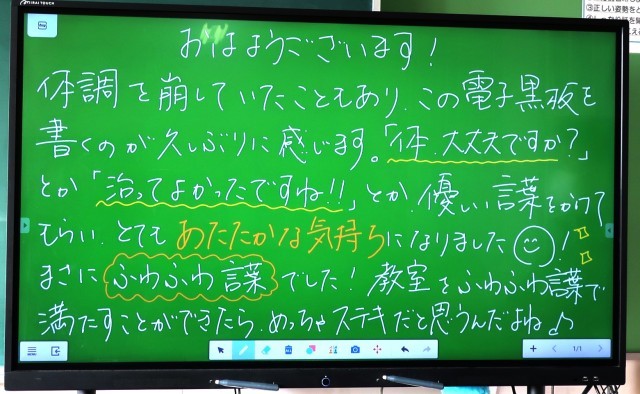 おはようございます!
体調を崩していたこともあり、この電子黒板を
書くのが久しぶりに感じます。「体、大丈夫ですか?」
とか「治ってよかったですね!!」とか、優しい言葉をかけて
もらい、とてもあたたかな気持ちになりました!
まさにふわふわ言葉でした!教室をふわふわ言葉で
満たすことができたら、めっちゃステキだと思うんだよね♪
1/1
③正しい姿勢を